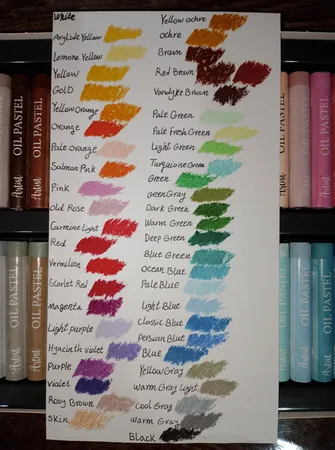 White
Acrylide Yellow
Lemone Yellow
Yellow
GolD
Yellow Orange
Orange
Pale Orange
Salmon Pink
Pink
old Rose
Carmine Light
Red
Vermilion
Scarlet Red
Magenta
Light purple
Hyacinth violet
Purple
violet
Rosy Brown
Skin
Yellow ochre
ochre
Brown
Red Brown
Vandyke Brown
Pale Green
Pale Fresh Green
Light Green
Turquoise Green
Green
green Gray
Dark Green
Warm Green
Deep Green
Blue Green
Ocean Blue
Pale Blue
Light Blue
Classic Blue
Persian Blue
Blue
Yellow Gray
Warm Gray Light
Cool Gray
Warm Gray
Black
OIL PASTEL
Artist
OIL PASTEL
Artist
OIL PASTEL
Artist
OIL PASTEL
Artist
OIL PASTEL
Artist
OIL PASTEL
Artist
OIL PASTEL
Artist
OIL PASTEL
Artist